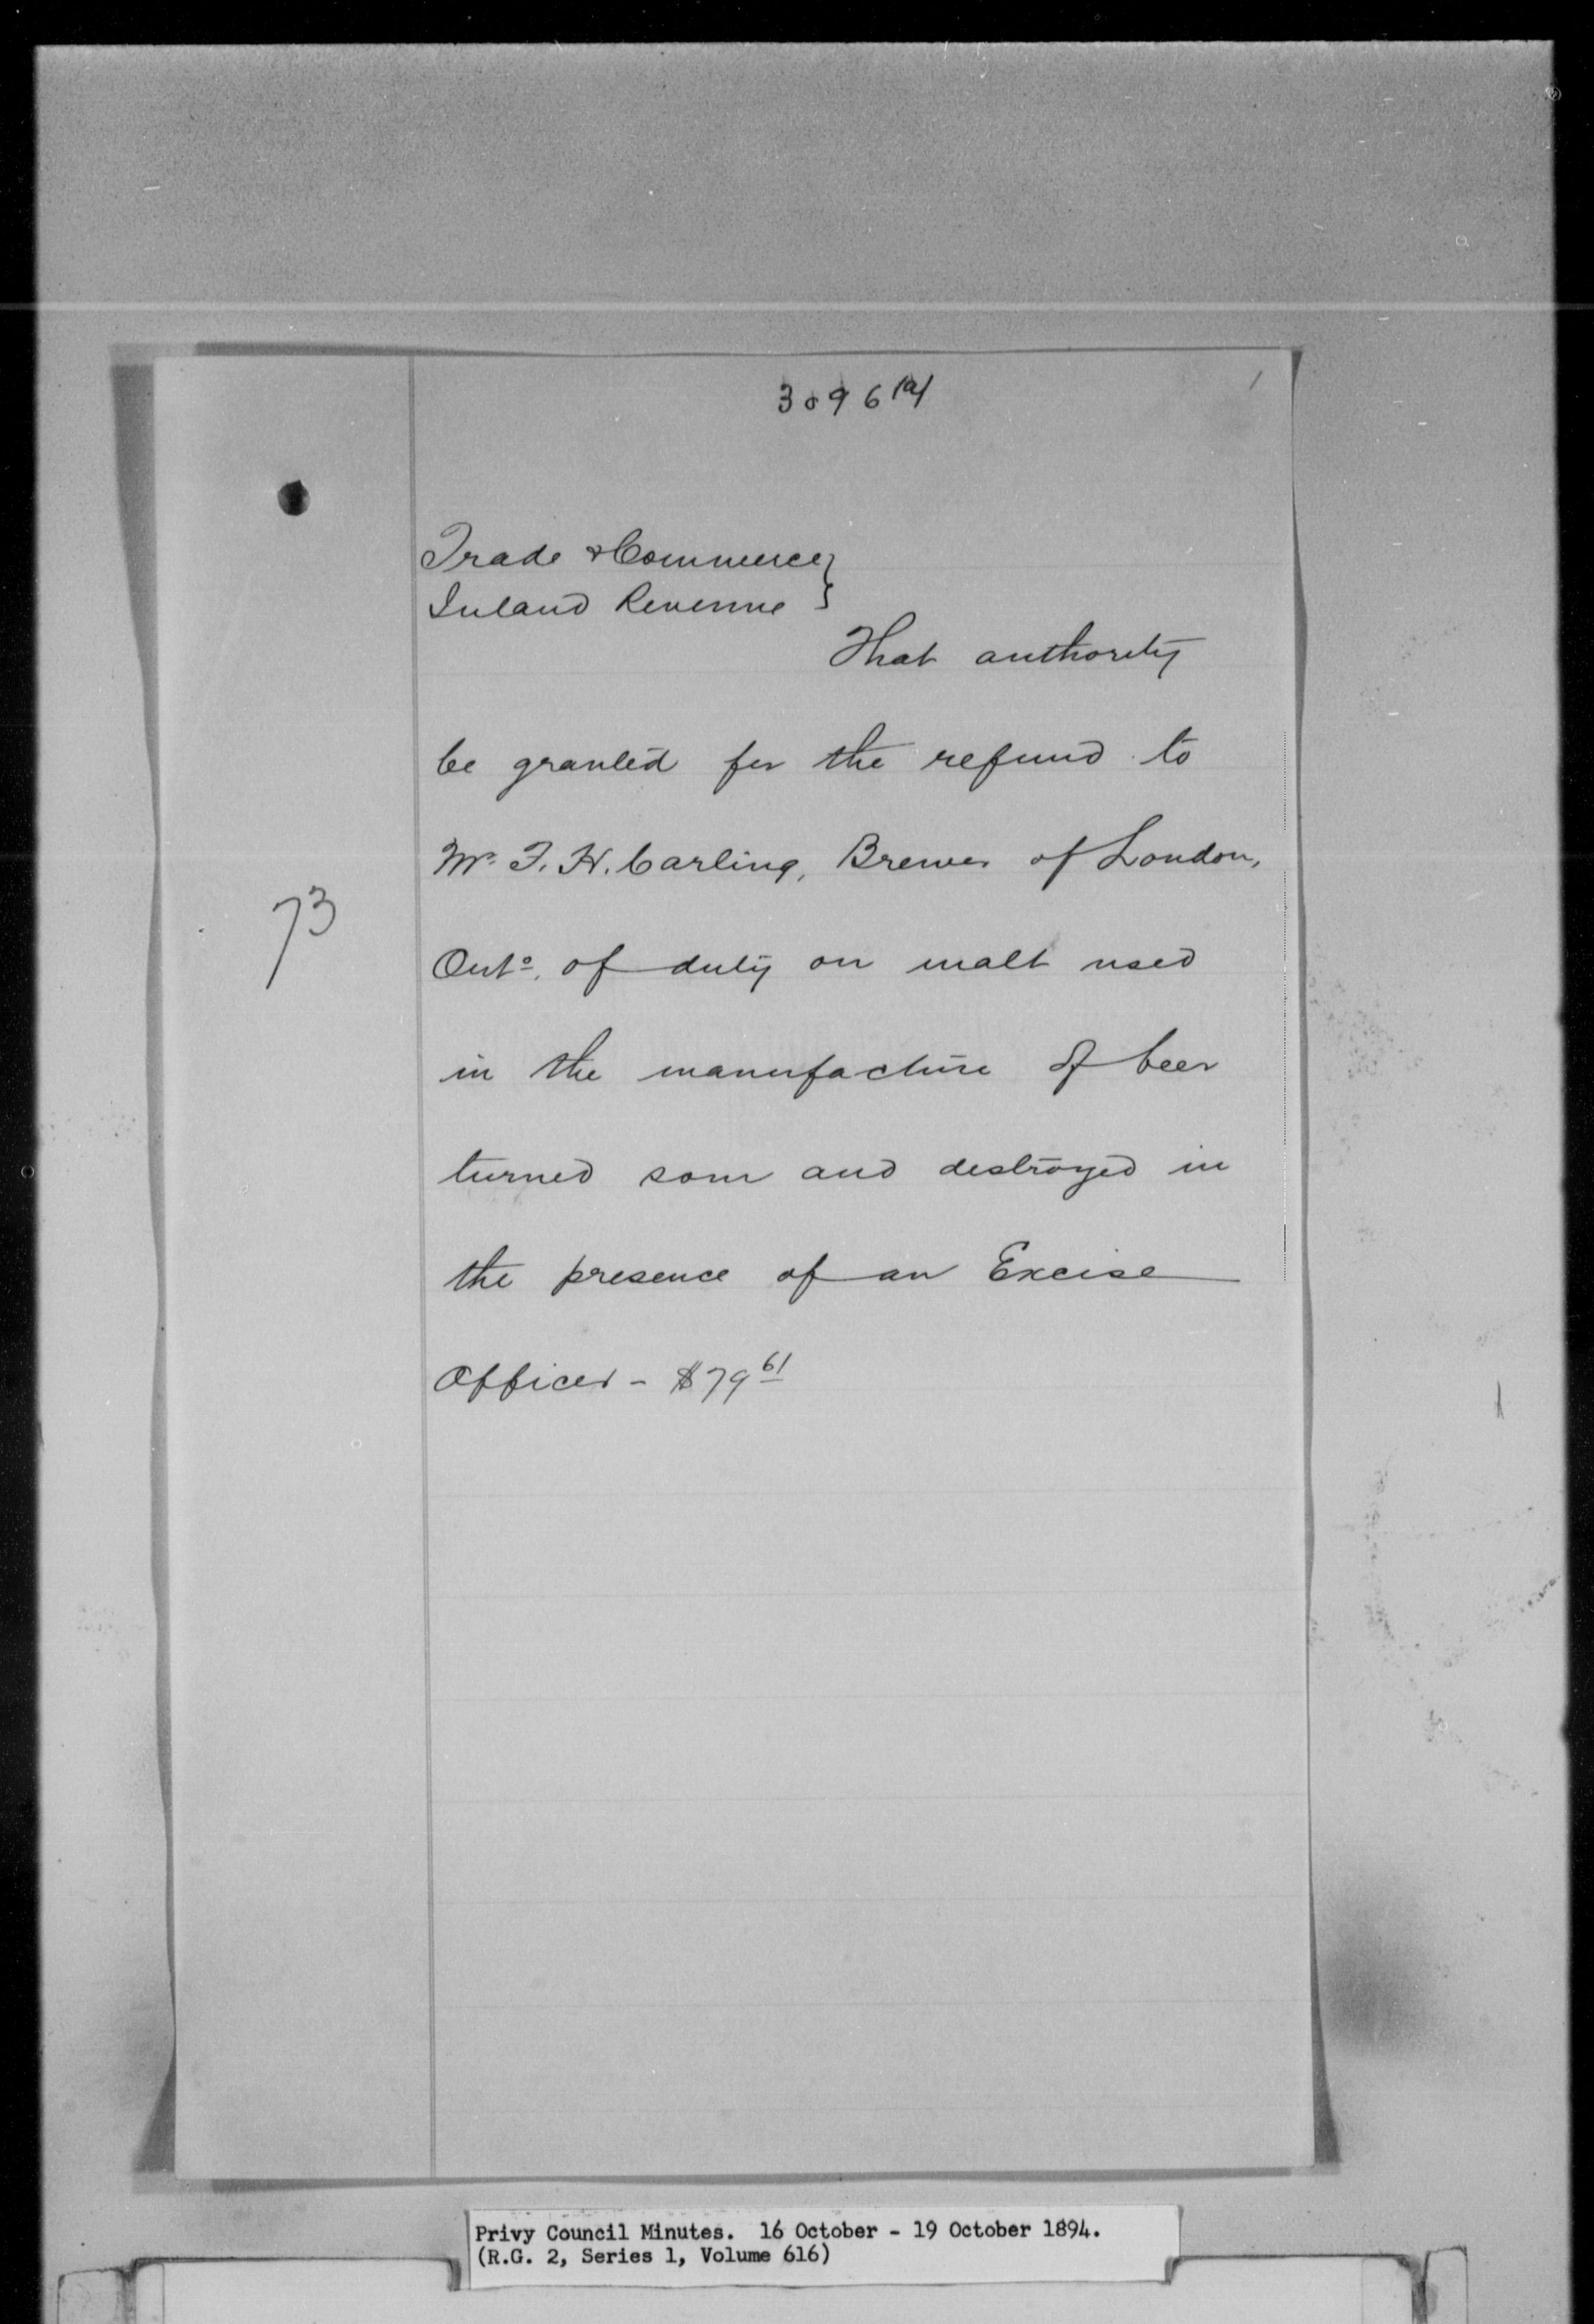 3096 (a)
1
Trade & Commerce }
Inland Revenue }
That authority
be granted for the refund to
73
Mr. F. H. Carling, Brewer of London,
Onto. of duty on malt used
in the manufacture of beer
turned sour and destroyed in
the presence of an Excise
Officer - $79 61
Privy Council Minutes. 16 October - 19 October 1894.
(R.G. 2, Series 1, Volume 616)